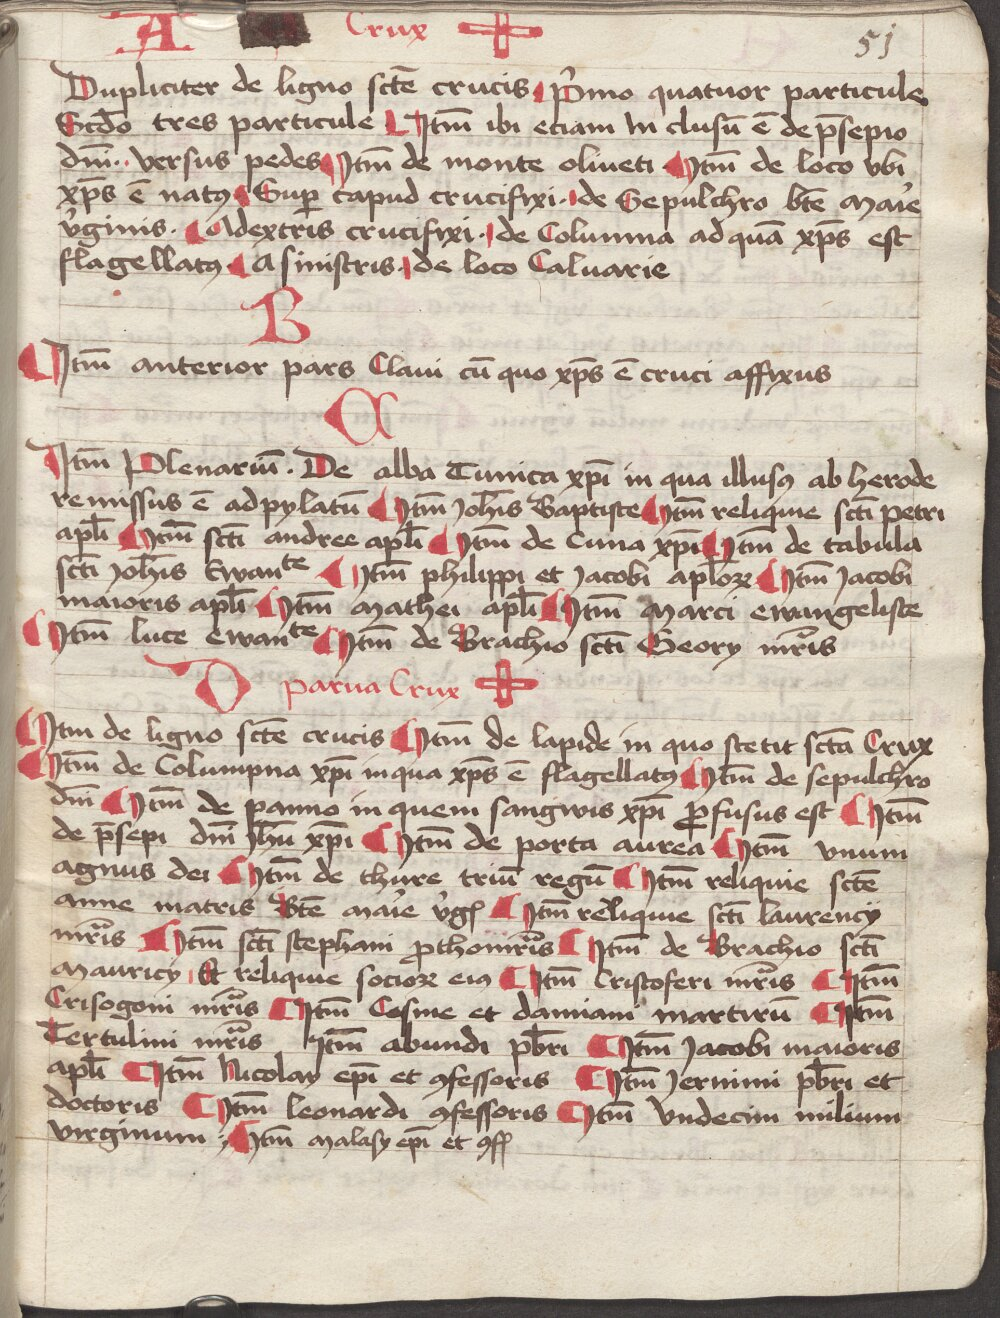 A Crux 51
Dupliciter de ligno sctē crucis Pͥmo quatuor particule
Scd̄o tres particule Itm̄ ibi eciam In clusū ē de p̄sepio
dnī. versus pedes Itm̄ de monte oliueti Itm̄ de loco vbi
xp̄s ē natꝰ Sup̲ capud crucifixi. de Sepulchro btē Maͥe
vͥginis. Adextris crucifixi. de Columna ad quā xp̄s est
flagellatꝰ A sinistris. de loco Caluarie
B
Itm̄ anterior pars Claui cū quo xp̄s ē cruci affixus
C
Itm̄ Plenariū. De alba Tunica xp̄i in qua illusꝰ ab herode
remissus ē ad pylatū Itm̄ Joh̄is Baptiste Itm̄ reliquie sctī petri
apl̄i Itm̄ sctī andree apl̄i Itm̄ de Cuna xp̄i Itm̄ de tabula
sctī Joh̄is Ewanᵗᵉ Itm̄ philippi et Jacobi apl̄oꝝ Itm̄ Jacobi
maioris apl̄i Itm̄ Mathei apl̄i Itm̄ Marci ewangeliste
Itm̄ luce ewanᵗᵉ Itm̄ de Brachio sctī Geory mr̄is
D parua Crux
Itm de ligno sctē crucis Itm̄ de lapide in quo stetit sctā Crux
Itm̄ de Columpna xp̄i in qua xp̄s ē flagellatꝰ Itm̄ de sepulchro
dnī Itm̄ de panno in quem sangwis xp̄i ꝓfusus est Itm̄
de p̄sepi dnī Jhū xp̄i Itm̄ de porta aurea Itm̄ vnum
agnus dei Itm̄ de thure triū regū Itm̄ reliquie sctē
anne matris Btē Maͥe vͥgꝭ Itm̄ reliquie sctī laurency
mr̄is Itm̄ sctī stephani ꝓthomr̄is Itm̄ de Brachio sctī
Mauricy Et reliquie socioꝝ eiꝰ Itm̄ Cristoferi mr̄is Itm̄
Crisogoni mr̄is Itm̄ Cosme et damiani martirū Itm̄
Tertulini mr̄is Itm̄ abundi pb̄ri Itm̄ Jacobi maioris
apl̄i Itm̄ Nicolay ep̄i et ꝯfessoris Itm̄ Jernimi pb̄ri et
doctoris Itm̄ leonardi ꝯfessoris Itm̄ vndecim milium
virginum Itm̄ Malasy ep̄i et ꝯff